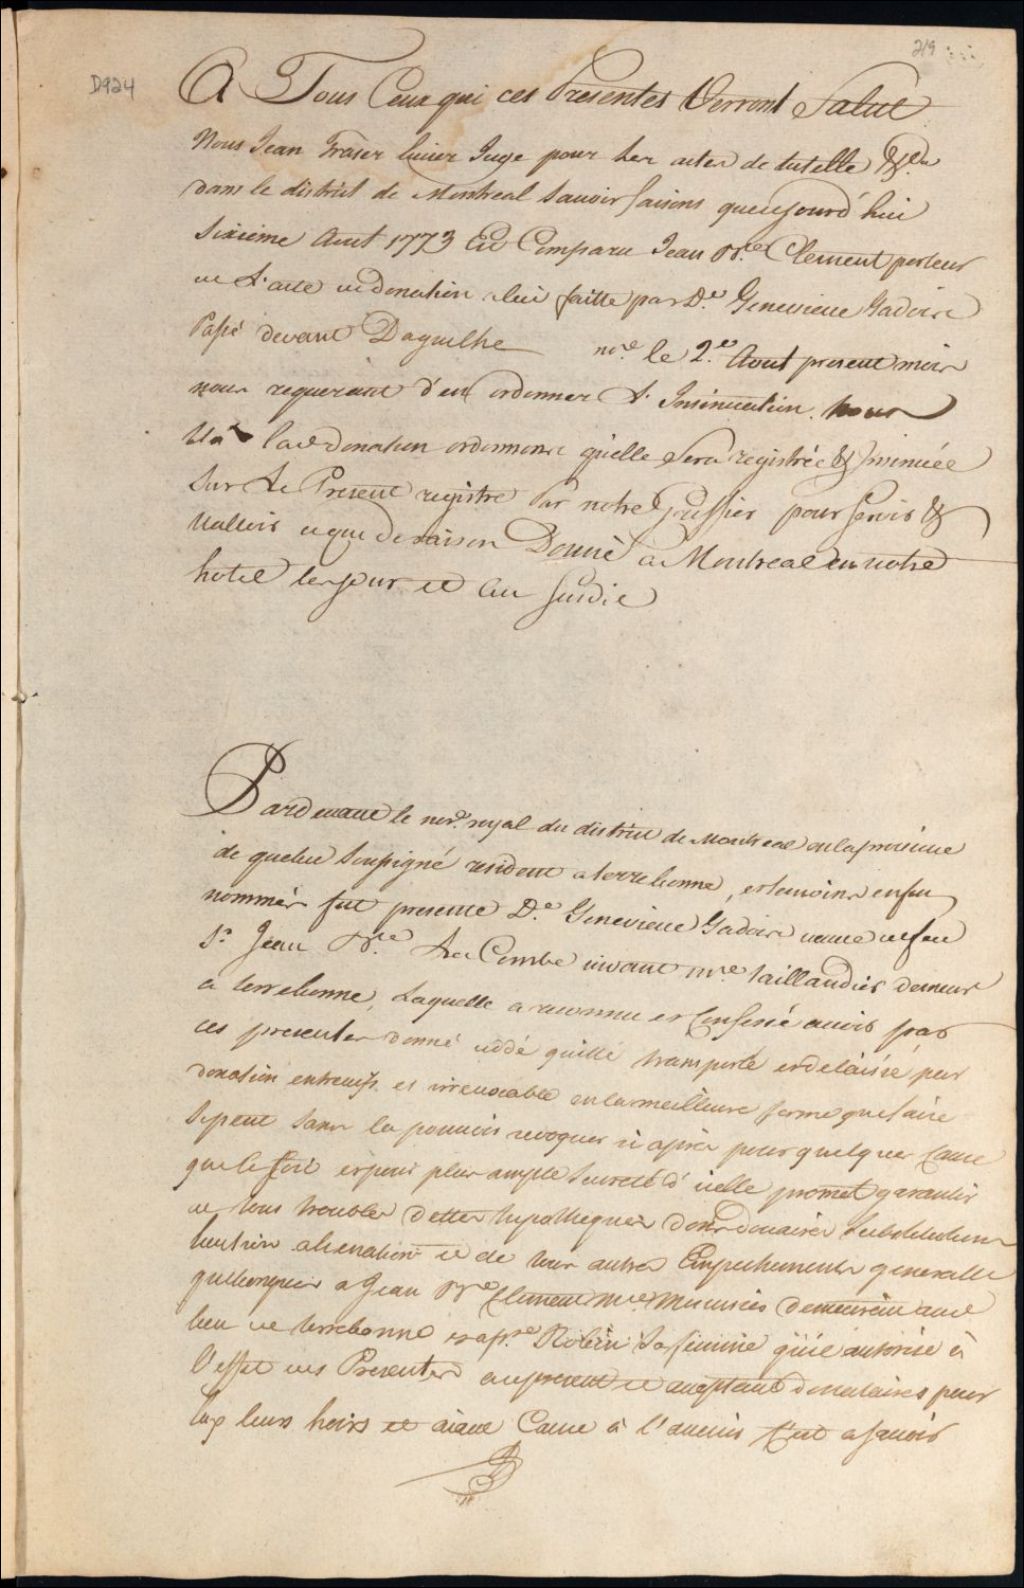 219
D924
A Tous Ceux qui ces Presentes Verront Salut
Nous Jean Fraser Ecuier Juge pour les actes de tutelle &ca
dans le district de Montreal Sauoir faisons queaujourd'hui
Sixieme Aout 1773 Est Comparu Jean Bte Clement porteur
de L'acte de donation a lui faitte par De Genevieue Gadois
Passé devant Daguilhe nre le 2e Aout present mois
nous requerant d'en ordonner L'Insinuation. Nous
Vû lade donation ordonnons quelle Sera registrée & Insinuée
Sur Le Present registre Par notre Greffier pour servir &
Valloir ce que de raison Donné a Montreal en notre
hotel les jour et an susdit
Pardeuant le nore royal du district de Montreal en la prouince
de quebec Soussigné resident a terrebonne, et temoins enfin
nommés fut presente De Genevieue Gadois veuue de feu
Sr Jean Bte La Combe viuant mre taillandier demeurt
a terrebonne, Laquelle a reconnu et Confessé auoir par
ces presentes donné cedé quitté transporté et delaissé par
donation entreuifs et irreuocable en la meilleure forme que faire
Se peut sans la pouuoir reuoquer ci après pour quelque Cause
que ce soit et pour plus ample Seureté d'icelle promet garantir
de tous troubles dettes hypotheques dons douaires Substitutions
euiction alienation et de tous autres Empechements generallt
quelconques a Jean Bte Clement mre Menuisier demeurant aud
lieu de terrebonne et a Robin Sa femme qu'il autorise à
l'effet des Presentes au present et acceptant donataires pour
Eux leurs hoirs et aiant Cause à l'auenir C'est a sauoir